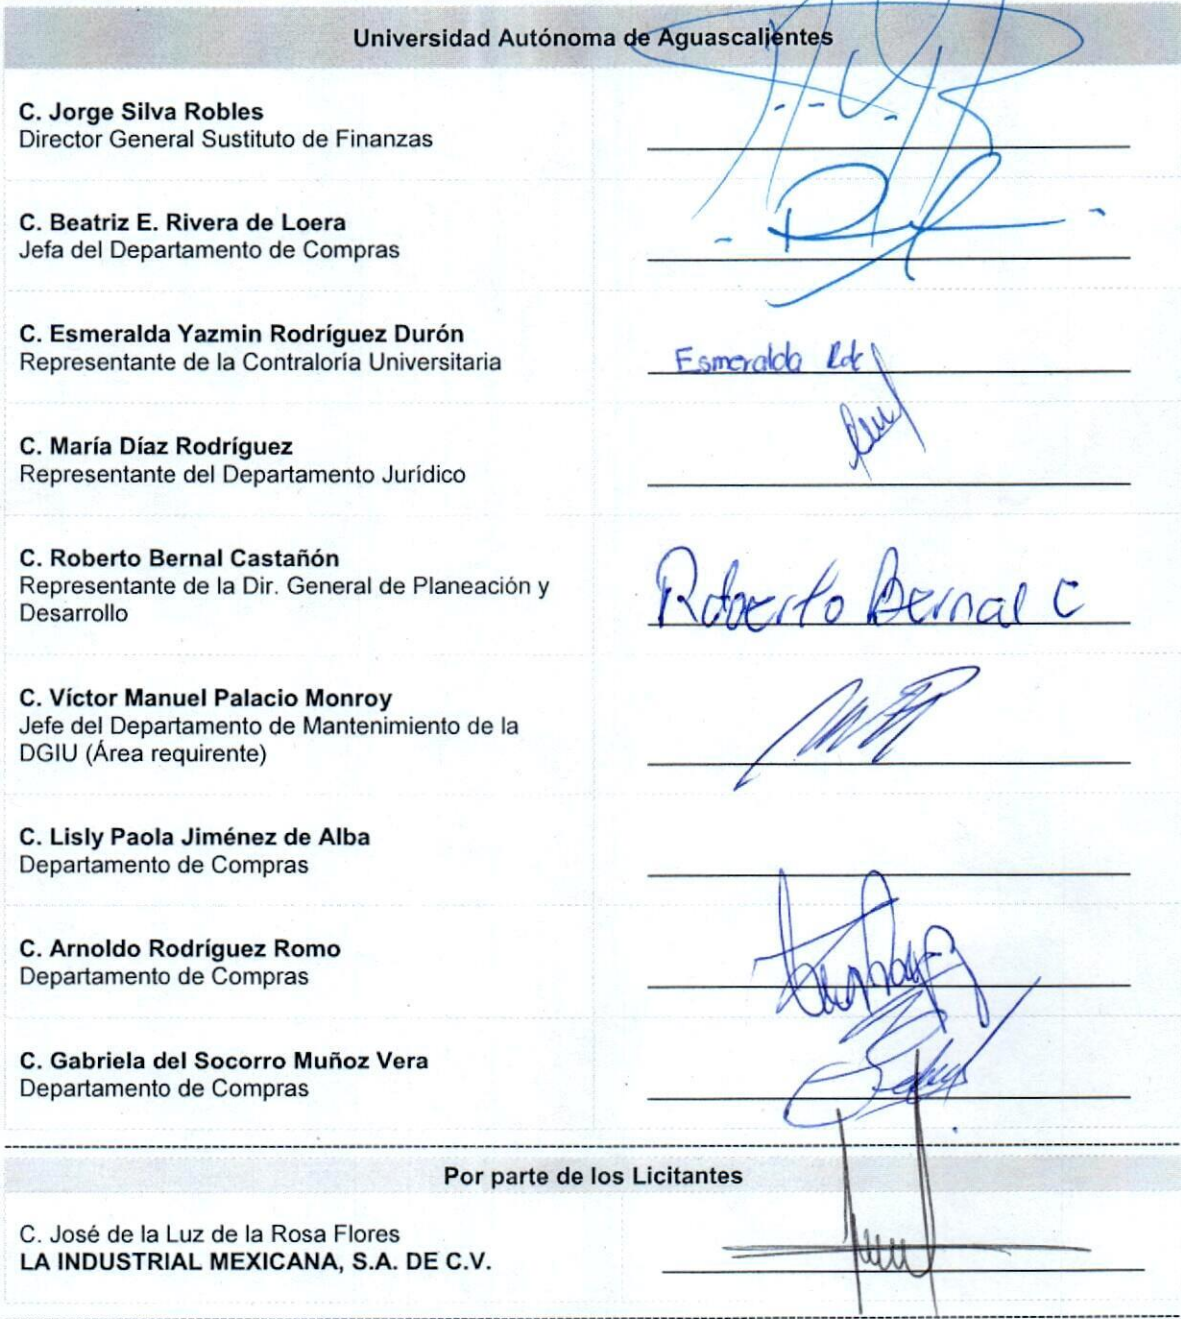 Universidad Autónoma de Aguascalientes
C. Jorge Silva Robles
Director General Sustituto de Finanzas
C. Beatriz E. Rivera de Loera
Jefa del Departamento de Compras
C. Esmeralda Yazmin Rodríguez Durón
Representante de la Contraloría Universitaria
Esmeralda
C. María Díaz Rodríguez
Representante del Departamento Jurídico
C. Roberto Bernal Castañón
Representante de la Dir. General de Planeación y
Desarrollo
Roberto Bernal C
C. Víctor Manuel Palacio Monroy
Jefe del Departamento de Mantenimiento de la
DGIU (Área requirente)
C. Lisly Paola Jiménez de Alba
Departamento de Compras
C. Arnoldo Rodríguez Romo
Departamento de Compras
C. Gabriela del Socorro Muñoz Vera
Departamento de Compras
Por parte de los Licitantes
C. José de la Luz de la Rosa Flores
LA INDUSTRIAL MEXICANA, S.A. DE C.V.